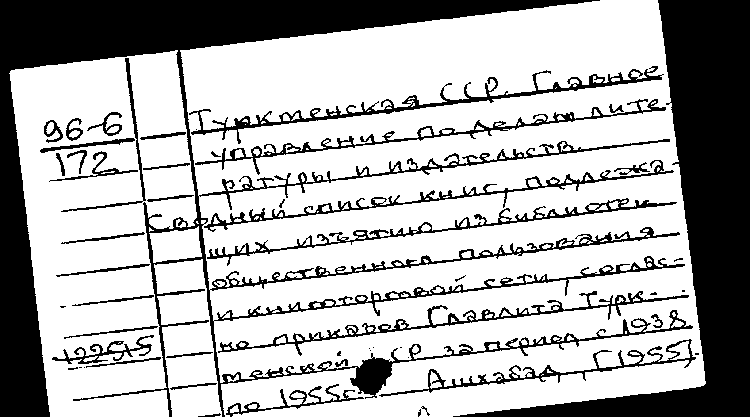 96-6
172
Туркменская ССР. Главное
управление по делам лите-
ратуры и издательств.
Сводный список книг, подлежа-
щих изъятию из библиотек
общественного пользования
и книготорговой сети, соглас-
но приказов Главлита Турк-
менской ССР за период с 1938
по 1955г. Ашхабад, [1955].